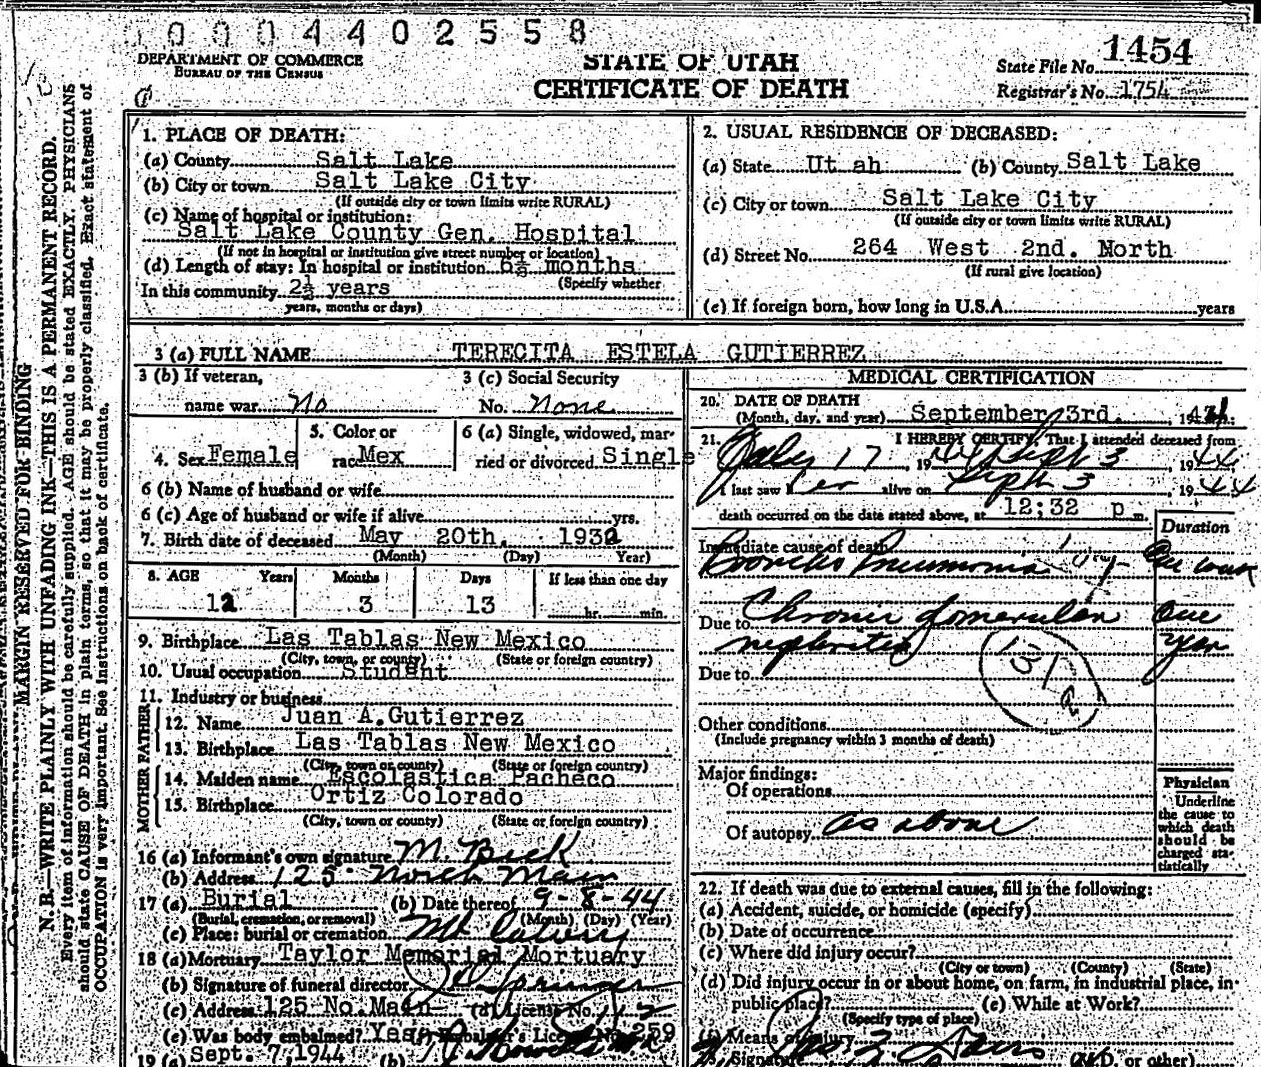 0004402558
DEPARTMENT OF COMMERCE
BUREAU OF THE CENSUS
STATE OF UTAH
CERTIFICATE OF DEATH
State File No. 1454
Registrar's No. 1754
MARGIN RESERVED FOR BINDING
N. B.—WRITE PLAINLY WITH UNFADING INK—THIS IS A PERMANENT RECORD.
Every item of information should be carefully supplied. AGE should be stated EXACTLY. PHYSICIANS
should state CAUSE OF DEATH in plain terms, so that it may be properly classified. Exact statement of
OCCUPATION is very important. See instructions on back of certificate.
1. PLACE OF DEATH:
(a) County Salt Lake
(b) City or town Salt Lake City
(If outside city or town limits write RURAL)
(c) Name of hospital or institution:
Salt Lake County Gen. Hospital
(If not in hospital or institution give street number or location)
(d) Length of stay: In hospital or institution 6½ months
(Specify whether
In this community 2½ years
years, months or days)
2. USUAL RESIDENCE OF DECEASED:
(a) State Ut ah (b) County Salt Lake
(c) City or town Salt Lake City
(If outside city or town limits write RURAL)
(d) Street No. 264 West 2nd. North
(If rural give location)
(e) If foreign born, how long in U.S.A. years
3 (a) FULL NAME TERECITA ESTELA GUTIERREZ
3 (b) If veteran, 3 (c) Social Security
name war No No. None
4. Sex Female 5. Color or race Mex 6 (a) Single, widowed, married or divorced Single
6 (b) Name of husband or wife
6 (c) Age of husband or wife if alive yrs.
7. Birth date of deceased May 20th. 1932
(Month) (Day) Year)
8. AGE Years Months Days If less than one day
12 3 13 hr. min.
9. Birthplace Las Tablas New Mexico
(City, town, or county) (State or foreign country)
10. Usual occupation Student
11. Industry or business
FATHER
12. Name Juan A.Gutierrez
13. Birthplace Las Tablas New Mexico
(City, town or county) (State or foreign country)
MOTHER
14. Maiden name Escolastica Pacheco
15. Birthplace Ortiz Colorado
(City, town or county) (State or foreign country)
16 (a) Informant's own signature M. Beck
(b) Address 125 North Main
17 (a) Burial (b) Date thereof 9-8-44
(Burial, cremation, or removal) (Month) (Day) (Year)
(c) Place: burial or cremation Mt Calvary
18 (a) Mortuary Taylor Memorial Mortuary
(b) Signature of funeral director
(c) Address 125 No. Main (d) License No.
(e) Was body embalmed? Yes (f) Embalmer's License No. 259
19 (a) Sept. 7,1944 (b)
MEDICAL CERTIFICATION
20. DATE OF DEATH
(Month, day, and year) September 3rd. 1944
21. I HEREBY CERTIFY, That I attended deceased from
July 17, 1944 Sept 3, 1944
I last saw her alive on Sept 3, 1944
death occurred on the date stated above, at 12:32 p m.
Duration
Immediate cause of death
Broncho Pneumonia One week
Due to Chronic glomerular One
nephritis year
Due to
131a
Other conditions
(Include pregnancy within 3 months of death)
Major findings:
Of operations
Of autopsy as above
Physician
Underline
the cause to
which death
should be
charged sta-
tistically
22. If death was due to external causes, fill in the following:
(a) Accident, suicide, or homicide (specify)
(b) Date of occurrence
(c) Where did injury occur?
(City or town) (County) (State)
(d) Did injury occur in or about home, on farm, in industrial place, in
public place? (e) While at Work?
(Specify type of place)
Means of injury
23. Signature (M.D. or other)